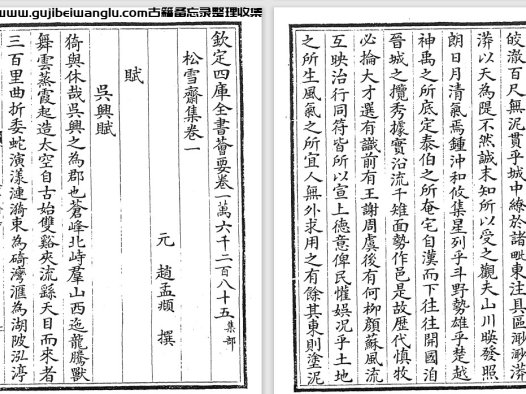 www.gujibeiwanglu.com古籍备忘录整理收集
欽定四庫全書薈要卷一萬六千二百八十五集部
松雪齋集卷一
元 趙孟頫 撰
賦
吳興賦
猗與休哉吳興之為郡也蒼峰北峙羣山西迤龍騰獸
舞雲蒸霞起造太空自古始雙谿夾流繇天目而來者
三百里曲折委蛇演漾漣漪東為碕灣滙為湖陂泓渟
皎澈百尺無泥貫乎城中繚於諸毗東注具區渺渺漭
漭以天為隄不然誠未知所以受之觀夫山川映發照
朗日月清氣焉鍾沖和攸集星列乎斗野勢雄乎楚越
神禹之所底定泰伯之所奄宅自漢而下往往開國洎
晉城之攬秀據實沿流千雉面勢作邑是故歴代慎牧
必掄大才選有識前有王謝周虞後有何柳顏蘇風流
互映治行同符皆所以宣上德意俾民懽娯況乎土地
之所生風氣之所宜人無外求用之有餘其東則塗泥